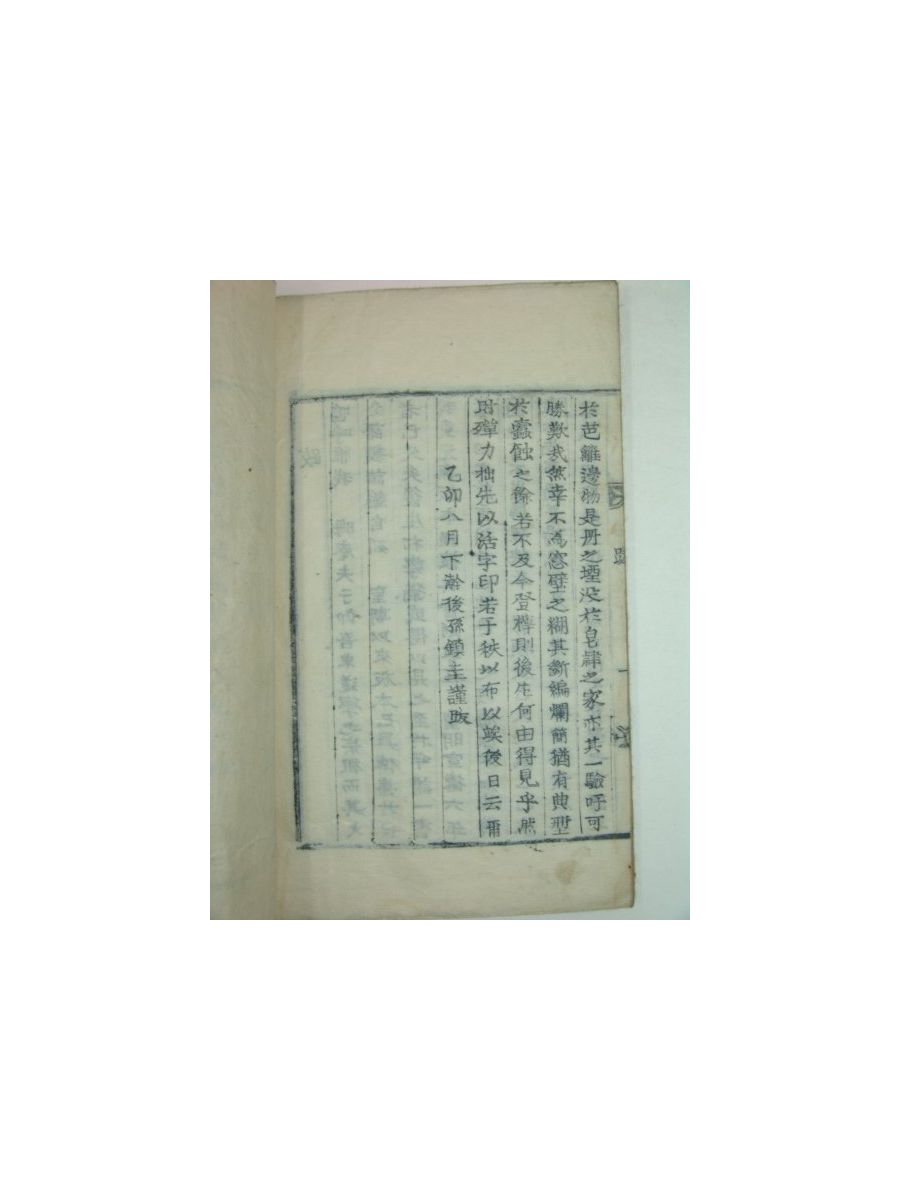 於芭籬邊物是册之堙没於皂肆之家亦其一驗吁可
勝歎哉然幸不為窓壁之糊其斷編爛簡猶有典型
於蠹蝕之餘若不及今登榟則後生何由得見乎然
財殫力拙先以活字印若干秩以布以竢後日云爾
乙卯八月下瀚後孫鎭圭謹跋